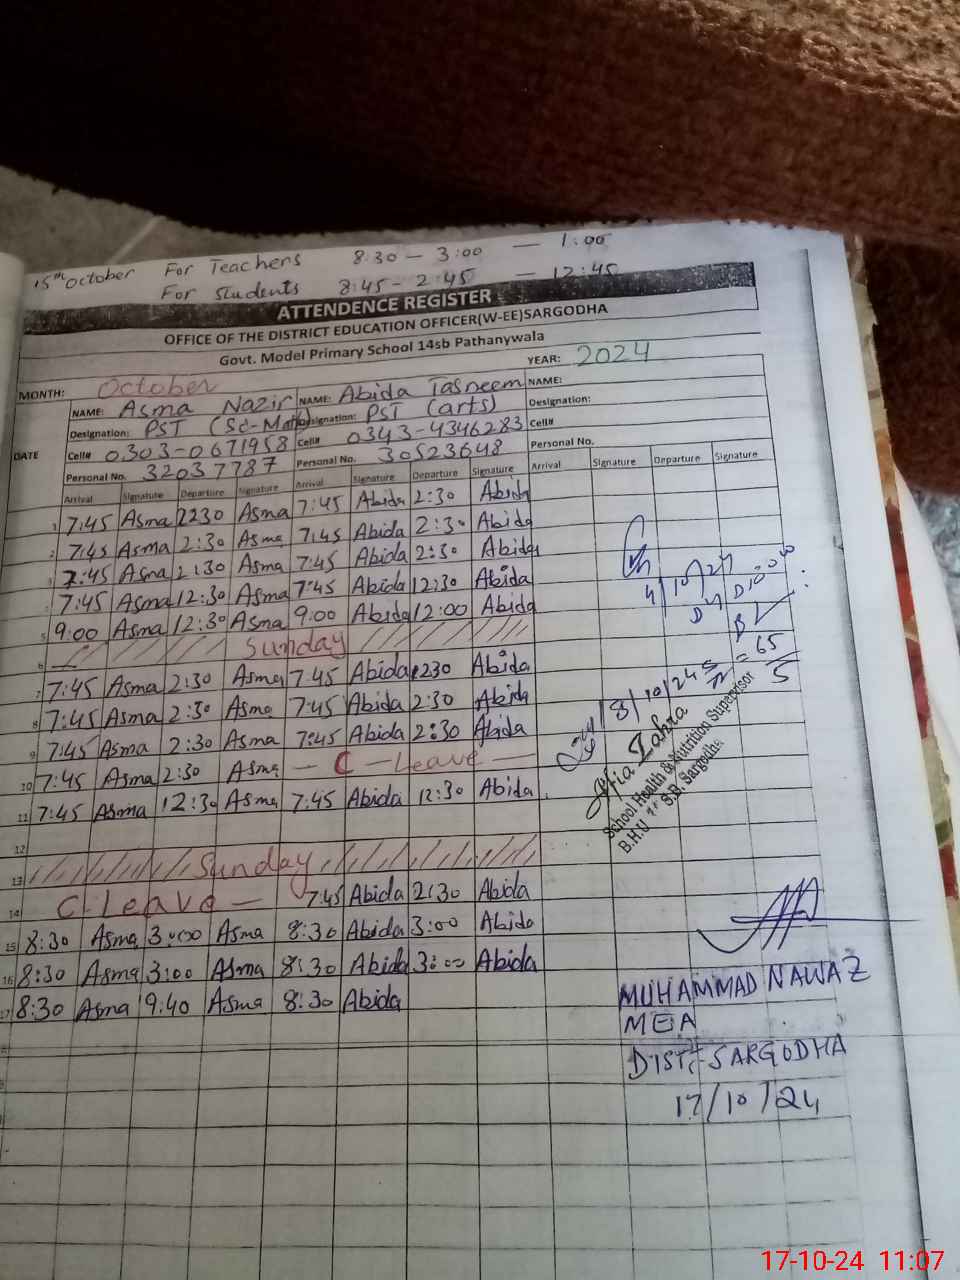 15th October For Teachers 8:30 - 3:00 — 1:00
For Students 8:45 - 2:45 — 12:45
ATTENDENCE REGISTER
OFFICE OF THE DISTRICT EDUCATION OFFICER(W-EE)SARGODHA
Govt. Model Primary School 14sb Pathanywala
MONTH: October YEAR: 2024
NAME: Asma Nazir NAME: Abida Tasneem NAME:
Designation: PST (Sc-Math) Designation: PST (arts) Designation:
DATE Cell# 0303-0671958 Cell# 0343-4346283 Cell#
Personal No. 32037787 Personal No. 30523648 Personal No.
Arrival Signature Departure Signature Arrival Signature Departure Signature Arrival Signature Departure Signature
1 7:45 Asma 2230 Asma 7:45 Abida 2:30 Abida
2 7:45 Asma 2:30 Asma 7:45 Abida 2:30 Abida
3 7:45 Asma 2:30 Asma 7:45 Abida 2:30 Abida
7:45 Asma 12:30 Asma 7:45 Abida 12:30 Abida
5 9:00 Asma 12:30 Asma 9:00 Abida 12:00 Abida
6 Sunday
7 7:45 Asma 2:30 Asma 7:45 Abida 2:30 Abida
8 7:45 Asma 2:30 Asma 7:45 Abida 2:30 Abida
9 7:45 Asma 2:30 Asma 7:45 Abida 2:30 Abida
10 7:45 Asma 2:30 Asma — C - Leave —
11 7:45 Asma 12:30 Asma 7:45 Abida 12:30 Abida
12
13 Sunday
14 C-Leave — 7:45 Abida 2:30 Abida
15 8:30 Asma 3:00 Asma 8:30 Abida 3:00 Abida
16 8:30 Asma 3:00 Asma 8:30 Abida 3:00 Abida
17 8:30 Asma 9:40 Asma 8:30 Abida
4/10/24
8/10/24
= 65
5
Afia Zahra
School Health & Nutrition Supervisor
B.H.U S.B. Sargodha
MUHAMMAD NAWAZ
MEA
DISTT-SARGODHA
17/10/24
17-10-24 11:07